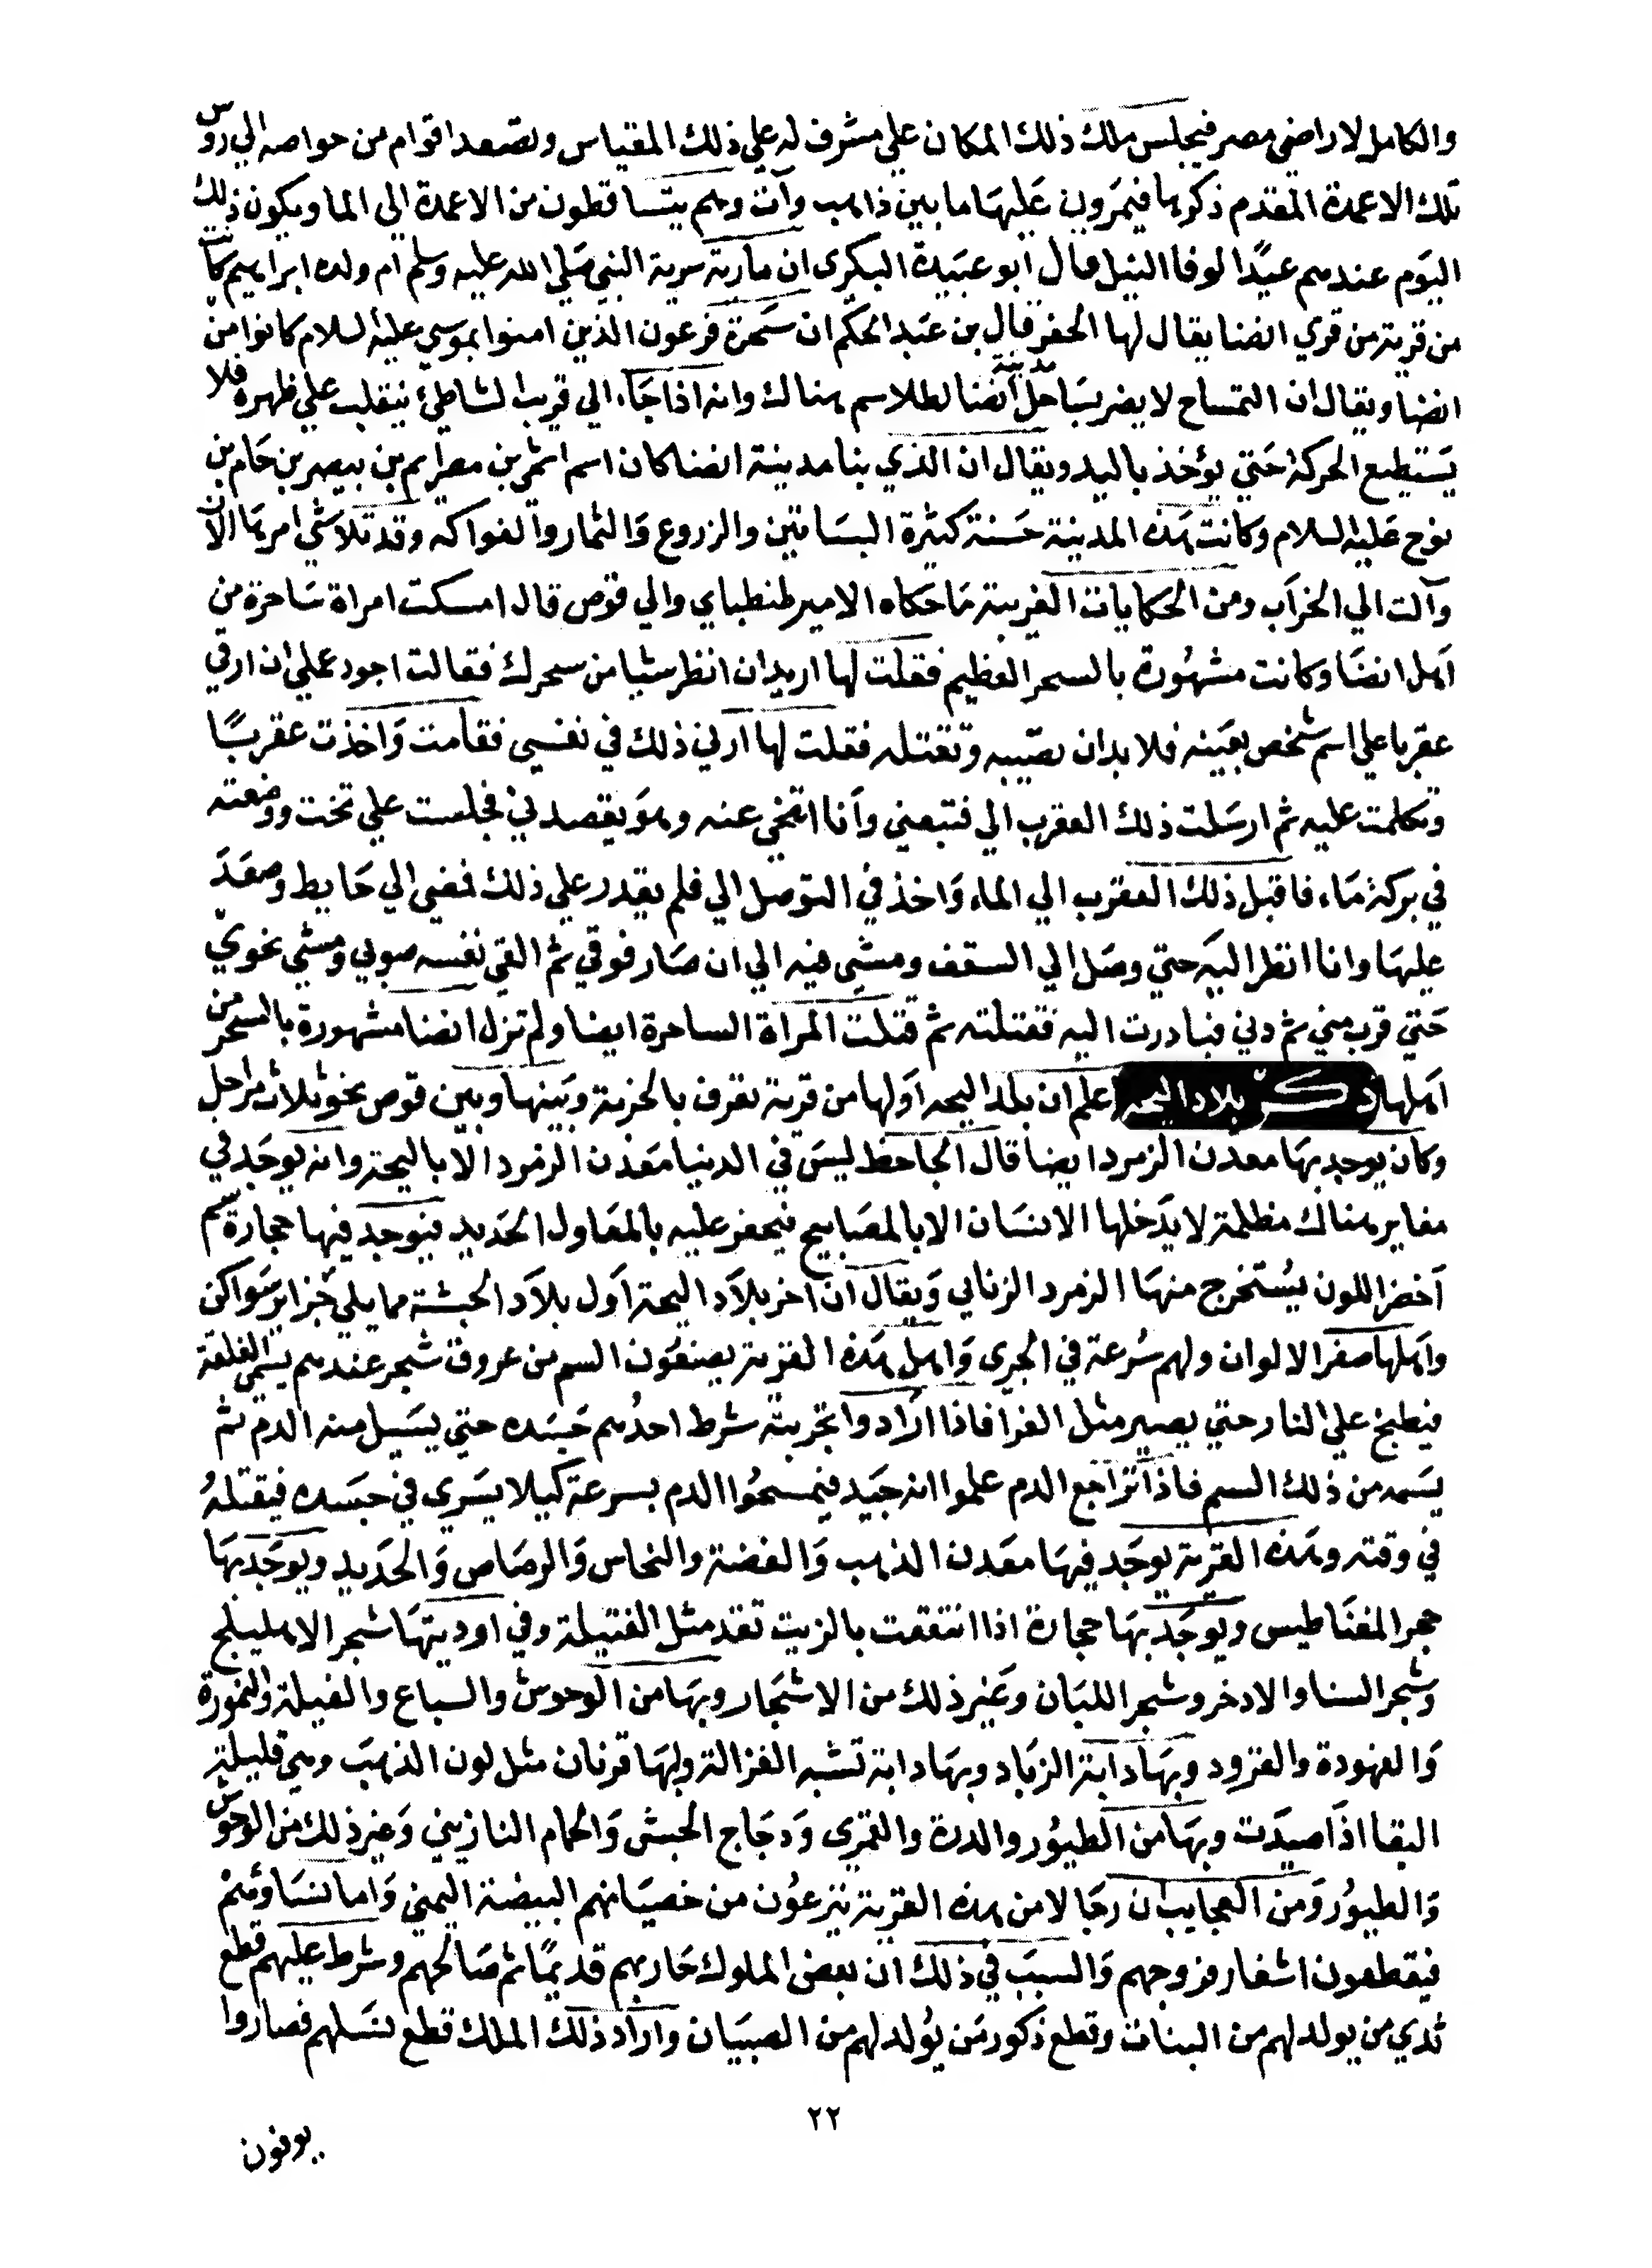 والكامل لاراضي مصر فيجلس ملك ذلك المكان علي مشرف له علي ذلك المقياس وتصعد اقوام من خواصه الي روس
تلك الاعمدة المقدم ذكرها فيمرون عليها ما بين ذاهب وآت وهم يتساقطون من الاعمدة الي الما ويكون ذلك
اليوم عندهم عيدًا لوفا النيل قال ابو عبيدة البكري ان مارية سرية النبي صلي الله عليه وسلم ام ولده ابراهيم كانت
من قرية من قري انصنا يقال لها الحفر قال بن عبد الحكم ان سحرة فرعون الذين امنوا بموسي عليه السلام كانوا من
انصنا ويقال ان التمساح لا يضر بساحل مدينة انصنا لطلاسم هناك وانه اذا جاء الي قرب الشاطئ ينقلب علي ظهره فلا
يستطيع الحركة حتي يؤخذ باليد ويقال ان الذي بنا مدينة انصنا كان اسم اشمن بن مصرايم بن بيصر بن حام بن
نوح عليه السلام وكانت هذه المدينة حسنة كثيرة البساتين والزروع والثمار والفواكه وقد تلاشي امرها الان
وآلت الي الخراب ومن الحكايات الغريبة ما حكاه الامير طنطباي والي قوص قال امسكت امراة ساحرة من
اهل انصنا وكانت مشهورة بالسحر العظيم فقلت لها اريد ان انظر شيا من سحرك فقالت اجود عملي ان ارقي
عقربا علي اسم شخص بعينه فلا بد ان تصيبه وتقتله فقلت لها ارني ذلك في نفسي فقامت واخذت عقربًا
وتكلمت عليه ثم ارسلت ذلك العقرب الي فتبعني وانا اتنحي عنه وهو يقصدني فجلست علي تخت ووضعته
في بركة ماء فاقبل ذلك العقرب الي الماء واخذ في التوصل الي فلم يقدر علي ذلك فمضي الي حايط وصعد
عليها وانا انظر اليه حتي وصل الي السقف ومشي فيه الي ان صار فوقي ثم القي نفسه صوبي ومشي نحوي
حتي قرب مني ثم دني فبادرت اليه فقتلته ثم قتلت المراة الساحرة ايضا ولم تزل انصنا مشهورة بالسحر من
اهلها ذكر بلاد البجه اعلم ان بلد البجه اولها من قرية تعرف بالخزبة وبينها وبين قوص نحو ثلاث مراحل
وكان يوجد بها معدن الزمرد ايضا قال الجاحظ ليس في الدنيا معدن الزمرد الا بالبجة وانه يوجد في
مغاير هناك مظلمة لا يدخلها الانسان الا بالمصابيح فيحفر عليه بالمعاول الحديد فيوجد فيها حجارة سم
اخضر اللون يستخرج منها الزمرد الزبابي ويقال ان اخر بلاد البجة اول بلاد الحبشة مما يلي جزاير سواكن
واهلها صفر الالوان ولهم سرعة في الجري واهل هذه القرية يصنعون السم من عروق شجر عندهم يسمي الغلغة
فيطبخ علي النار حتي يصير مثل الغرا فاذا ارادوا تجربته شرط احدهم جسده حتي يسيل منه الدم ثم
يسمه من ذلك السم فاذا تراجع الدم علموا انه جيد فيمسحوا الدم بسرعة كيلا يسري في جسده فيقتله
في وقته وهذه القرية يوجد فيها معدن الذهب والفضة والنحاس والرصاص والحديد ويوجد بها
حجر المغناطيس ويوجد بها حجارة اذا انتقعت بالزيت تقد مثل الفتيلة وفي اوديتها شجر الاهليلج
وشجر السنا والادخر وشجر اللبان وغير ذلك من الاشجار وبها من الوحوش والسباع والفيلة والنمورة
والفهودة والقرود وبها دابة الزباد وبها دابة تشبه الغزالة ولها قرنان مثل لون الذهب وهي قليلة
البقا اذا صيدت وبها من الطيور والدرة والقمري ودجاج الحبش والحمام النازيني وغير ذلك من الوحوش
والطيور ومن العجايب ان رجالا من هذه القرية ينزعون من خصيانهم البيضة اليمني واما نساؤهم
فيقطعون اشفار فروجهم والسبب في ذلك ان بعض الملوك حاربهم قديمًا ثم صالحهم وشرط عليهم قطع
ثدي من يولد لهم من البنات وقطع ذكور من يولد لهم من الصبيان واراد ذلك الملك قطع نسلهم فصاروا
٢٢
يوفون